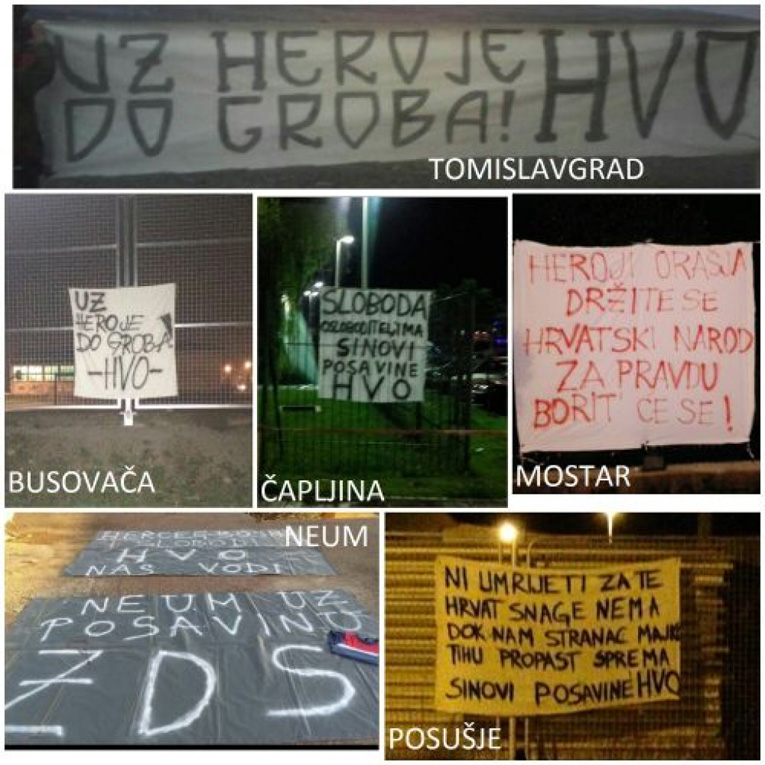 UZ HEROJE HVO
DO GROBA!
TOMISLAVGRAD
UZ
HEROJE
DO GROBA
-HVO-
BUSOVAČA
SLOBODA
OSLOBODITELJIMA
SINOVI
POSAVINE
HVO
ČAPLJINA
HEROJI ORAŠJA
DRŽITE SE
HRVATSKI NAROD
ZA PRAVDU
BORIT' ĆE SE!
MOSTAR
HVO
NAS VODI
NEUM UZ
POSAVINU
ZDS
NEUM
NI UMRIJETI ZA TE
HRVAT SNAGE NEMA
DOK NAM STRANAC
TIHU PROPAST SPREMA
SINOVI POSAVINE HVO
POSUŠJE